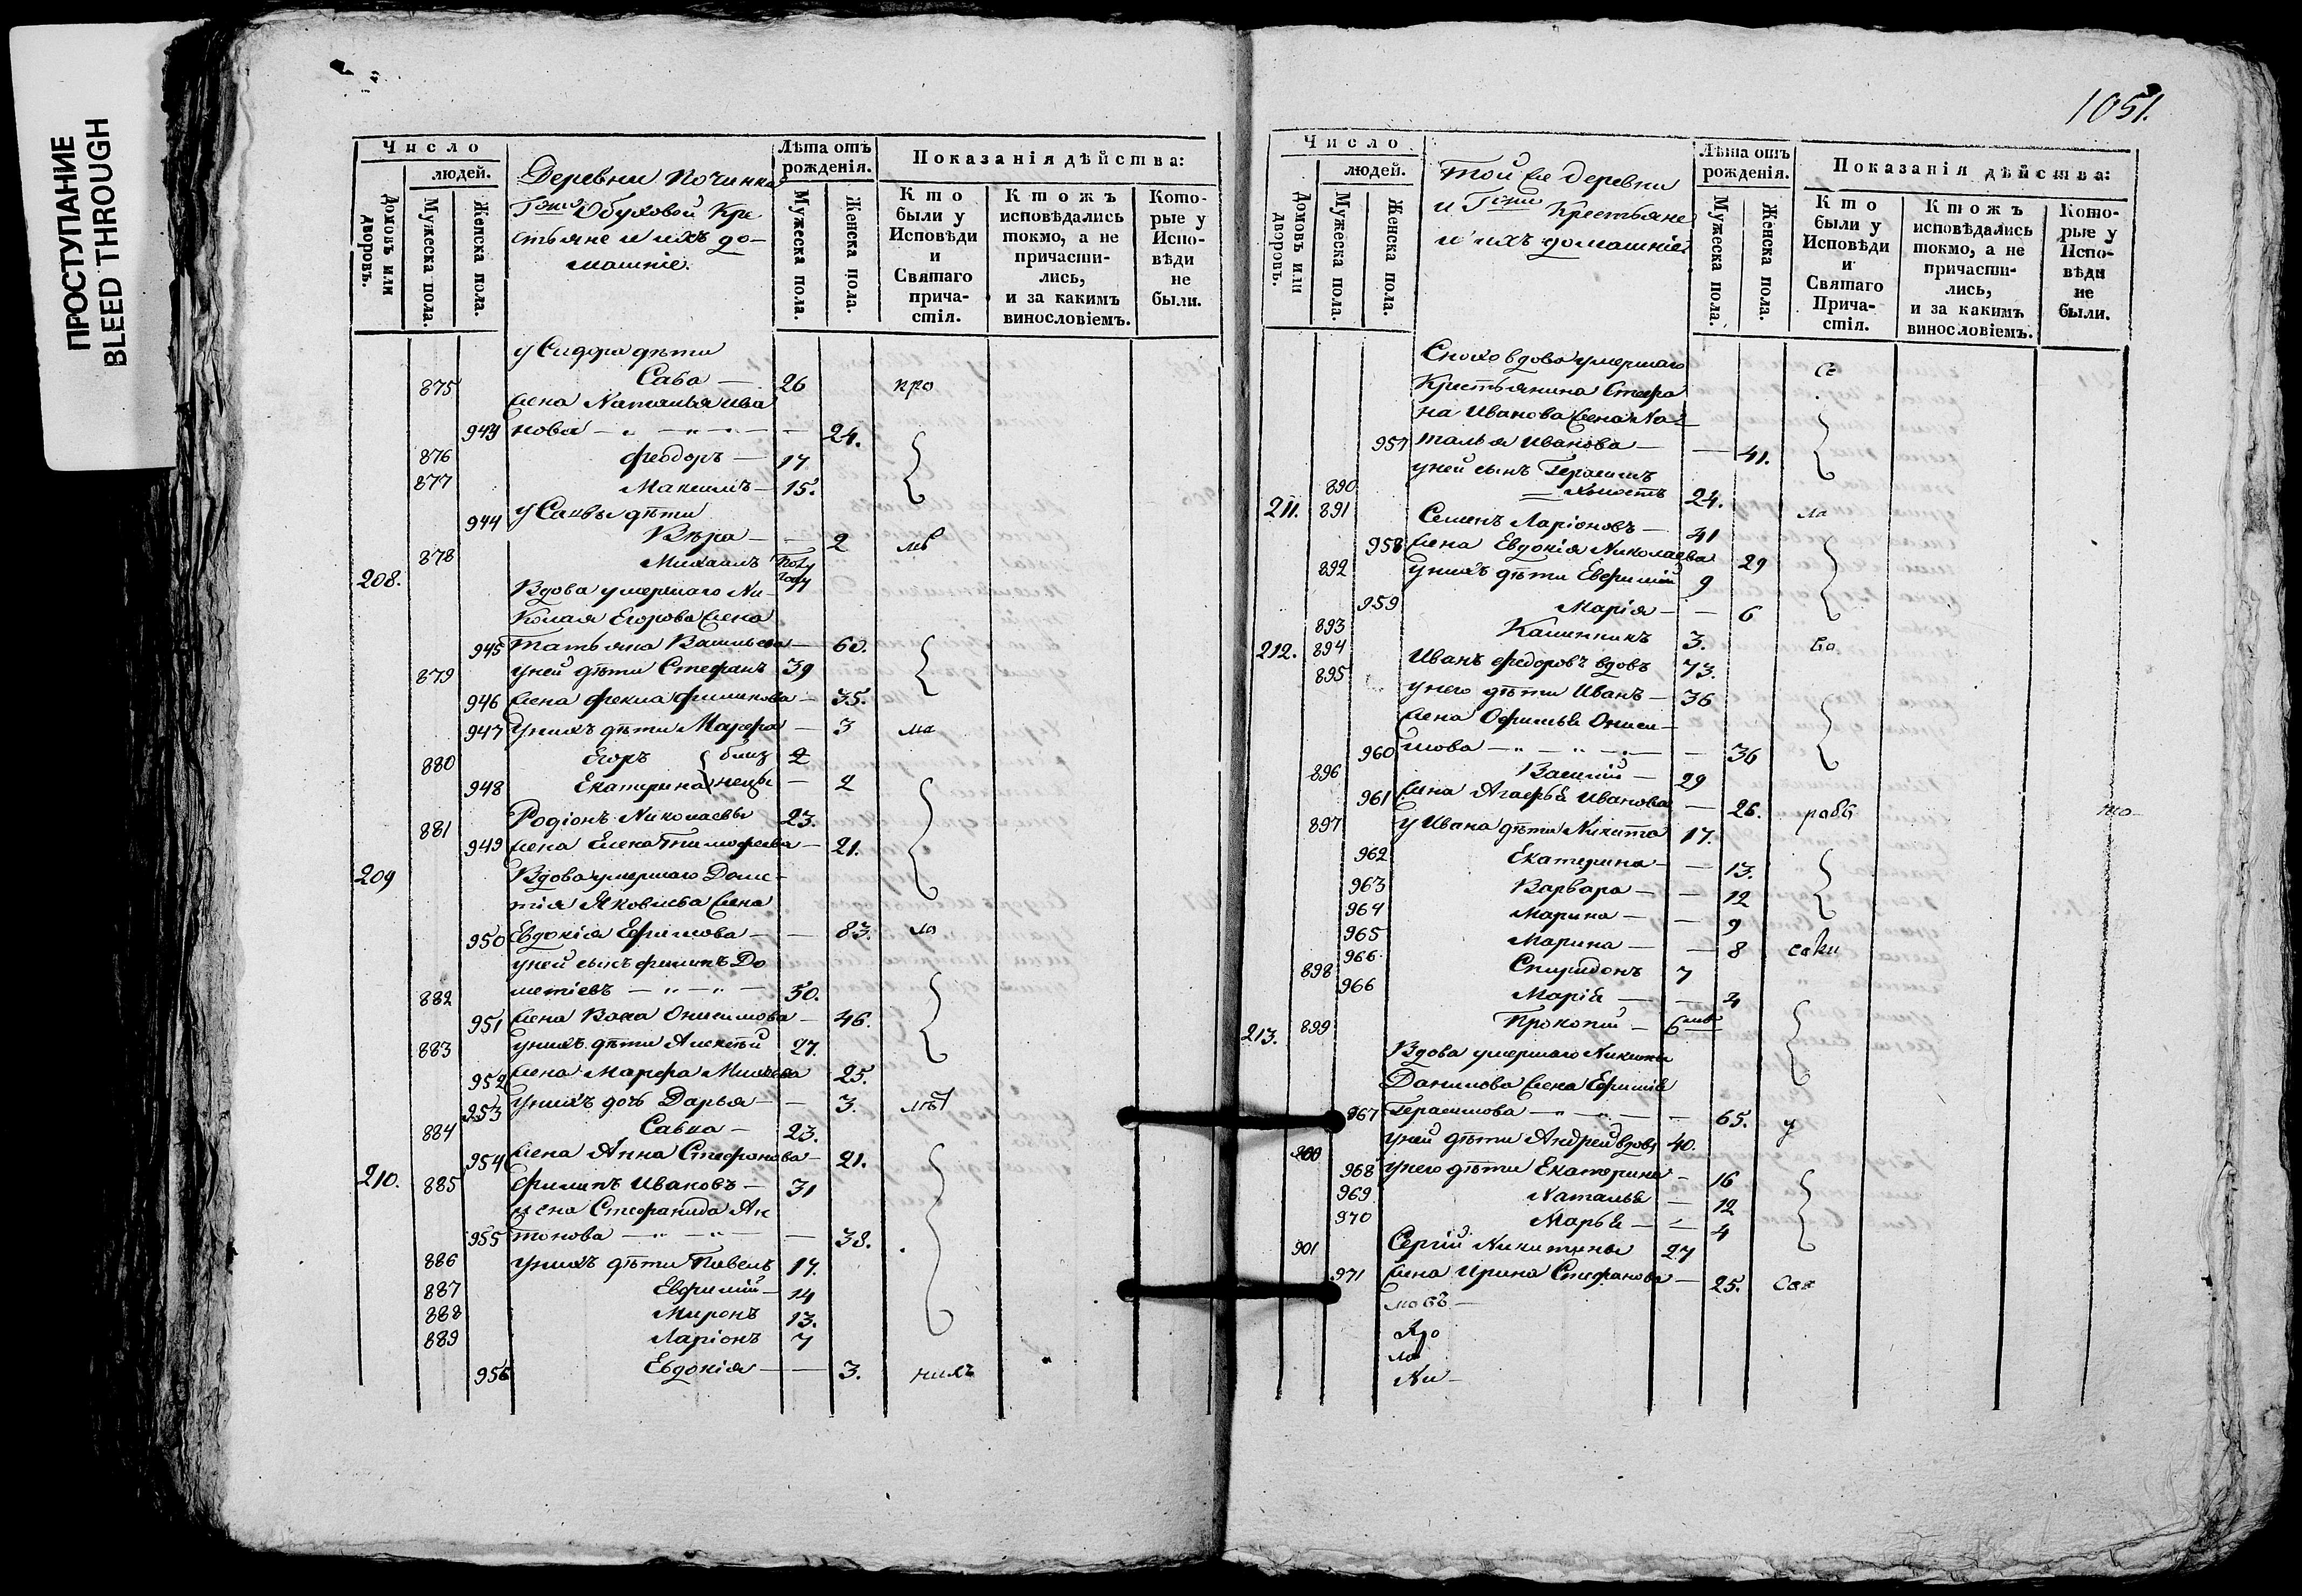 ПРОСТУПАНИЕ
BLEED THROUGH
Число
людей.
Домовъ или дворовъ.
Мужеска пола.
Женска пола.
Деревни Починка
Г‾жи Обуховой Кре
стьяне и ихъ до-
машніе.
Лѣта отъ рожденія.
Мужеска пола.
Женска пола.
Показанія дѣйства:
Кто были у Исповѣди и Святаго прича-стія.
Ктожъ исповѣдались токмо, а не причасти-лись, и за какимъ винословіемъ.
Кото-рые у Испо-вѣди не были.
у Сидора дѣти
875 Сава — 26 про
жена Наталья Ива
943 нова — 24.
876 Феодоръ — 17
877 Максимъ — 15.
у Саввы дѣти
944 Вѣра — 2
878 Михаилъ полу году
208. Вдова умершаго Ни-
колая Егорова жена
945 Татьяна Васильева — 60.
879 у ней дѣти Стефанъ 39
946 жена Фекла Филипова — 35.
947 у нихъ дѣти Марфа — 3 ма
880 Егоръ близ 2
948 Екатерина нецы — 2
881 Родіонъ Николаевъ 23.
949 жена Елена Тимофеева — 21.
209 Вдова умершаго Доме-
тія Яковлева жена
950 Евдокія Ефимова — 83. ло
у ней сынъ Филипъ До
882 метіевъ — 50.
951 жена Васса Онисимова — 46.
883 у нихъ дѣти Алексѣй 27.
952 жена Марфа Михеева 25.
953 у нихъ дочь Дарья — 3. лѣт
884 Савва — 23.
954 жена Анна Стефанова — 21.
210. 885 Филипъ Ивановъ — 31
жена Стефанида Ан
955 тонова — 38.
886 у нихъ дѣти Павелъ 17.
887 Евфимій — 14
888 Миронъ 13.
889 Ларіонъ 7
956 Евдокія — 3. нихъ
1051.
Число
людей.
Домовъ или дворовъ.
Мужеска пола.
Женска пола.
Той же деревни
и Г‾жи Крестьяне
и ихъ домашніе
Лѣта отъ рожденія.
Мужеска пола.
Женска пола.
Показанія дѣйства:
Кто были у Исповѣди и Святаго Прича-стія.
Ктожъ исповѣдались токмо, а не причасти-лись, и за какимъ винословіемъ.
Кото-рые у Испо-вѣди не были.
вдова умершаго
Крестьянина Стефа
на Иванова жена На-
957 талья Иванова — 41.
у ней сынъ Герасимъ
890 холостъ 24.
211. 891 Семенъ Ларіоновъ — 41 ла
958 жена Евдокія Николаева 29
892 у нихъ дѣти Евфимій 9
959 Марія — 6
893 Калинникъ 3.
212. 894 Иванъ Федоровъ вдовъ 73. во
895 у него дѣти Иванъ — 36
жена Офимья Ониси-
960 мова — 36
896 Василій — 29
961 жена Агафья Иванова — 26.
897 у Ивана дѣти Никита 17.
962 Екатерина — 13.
963 Варвара — 12
964 Марина — 9
965 Марина — 8
966
898 Спиридонъ 7
966 Марія — 4
213. 899 Прокопій —
Вдова умершаго Никиты
Данилова жена Ефимія
967 Герасимова — 65. у
900 у ней дѣти Андрей вдовъ 40.
968 у него дѣти Екатерина — 16
969 Наталья — 12
970 Марья — 4
901 Сергій Никитинъ 27
971 жена Ирина Стефанова — 25.